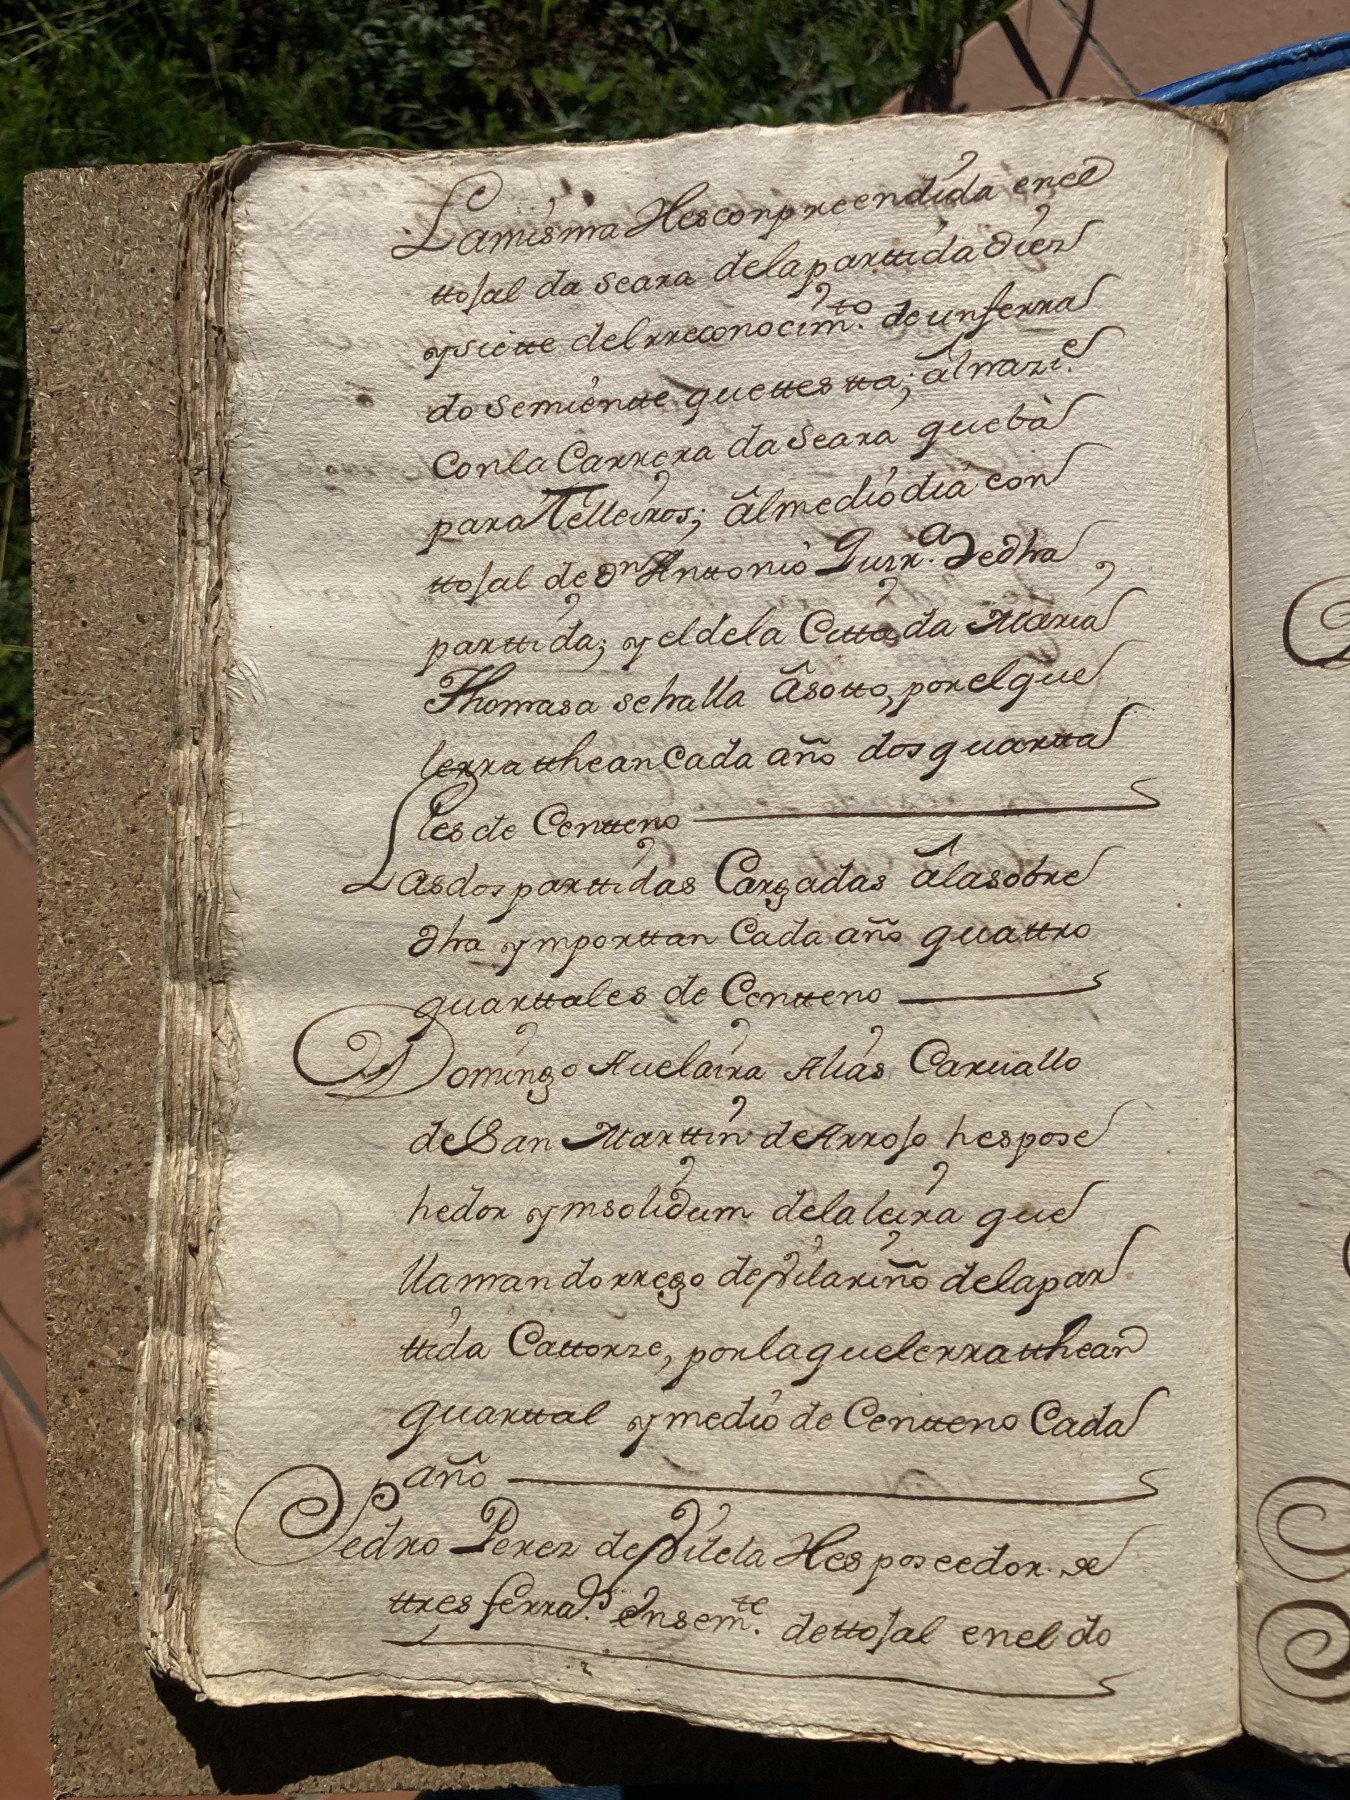 La misma Hes conpreendida en el
ttojal da seara de la parttida diez
y siette del rreconocim.to de un ferra
do semientte que ttestta; âl nazi.e
Con la Carrera da Seara que bà
para Telleiros; âl medio dia con
ttojal de Dn Anttonio Quir.a de dha
parttida; y el de la Cittada Maria
Thomasa se halla âsotto, por el que
le rratthean Cada año dos quartta
les de Centteno
Las dos parttidas Cargadas â la sobre
dha ymporttan Cada año quattro
quarttales de Centteno
Domingo Avelaira Alias Carvallo
de San Marttin de Arrojo hes pose
hedor ymsolidum de la leira que
llaman do rrego de Vilariño de la par
ttida Cattorze, por la que le rratthean
quarttal y medio de Centteno Cada
año
Pedro Perez de Vilela Hes poseedor de
ttres ferra.s en sem.tte de ttojal en el do